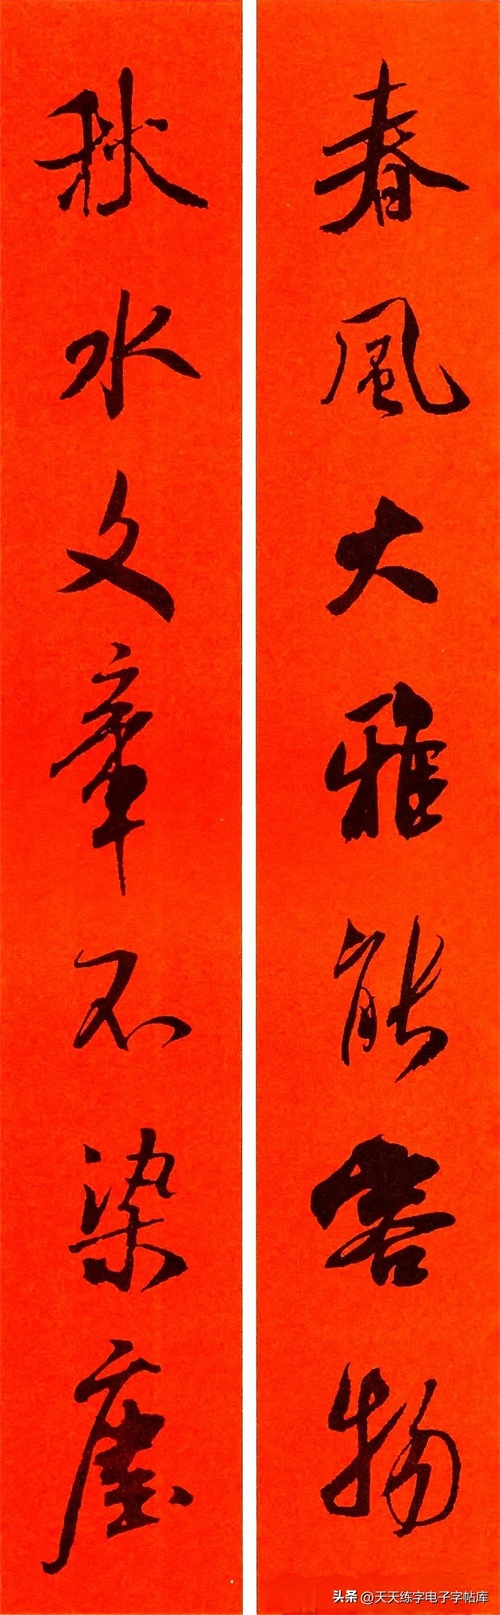 春風大雅能容物
秋水文章不染塵
头条 @天天练字电子字帖库